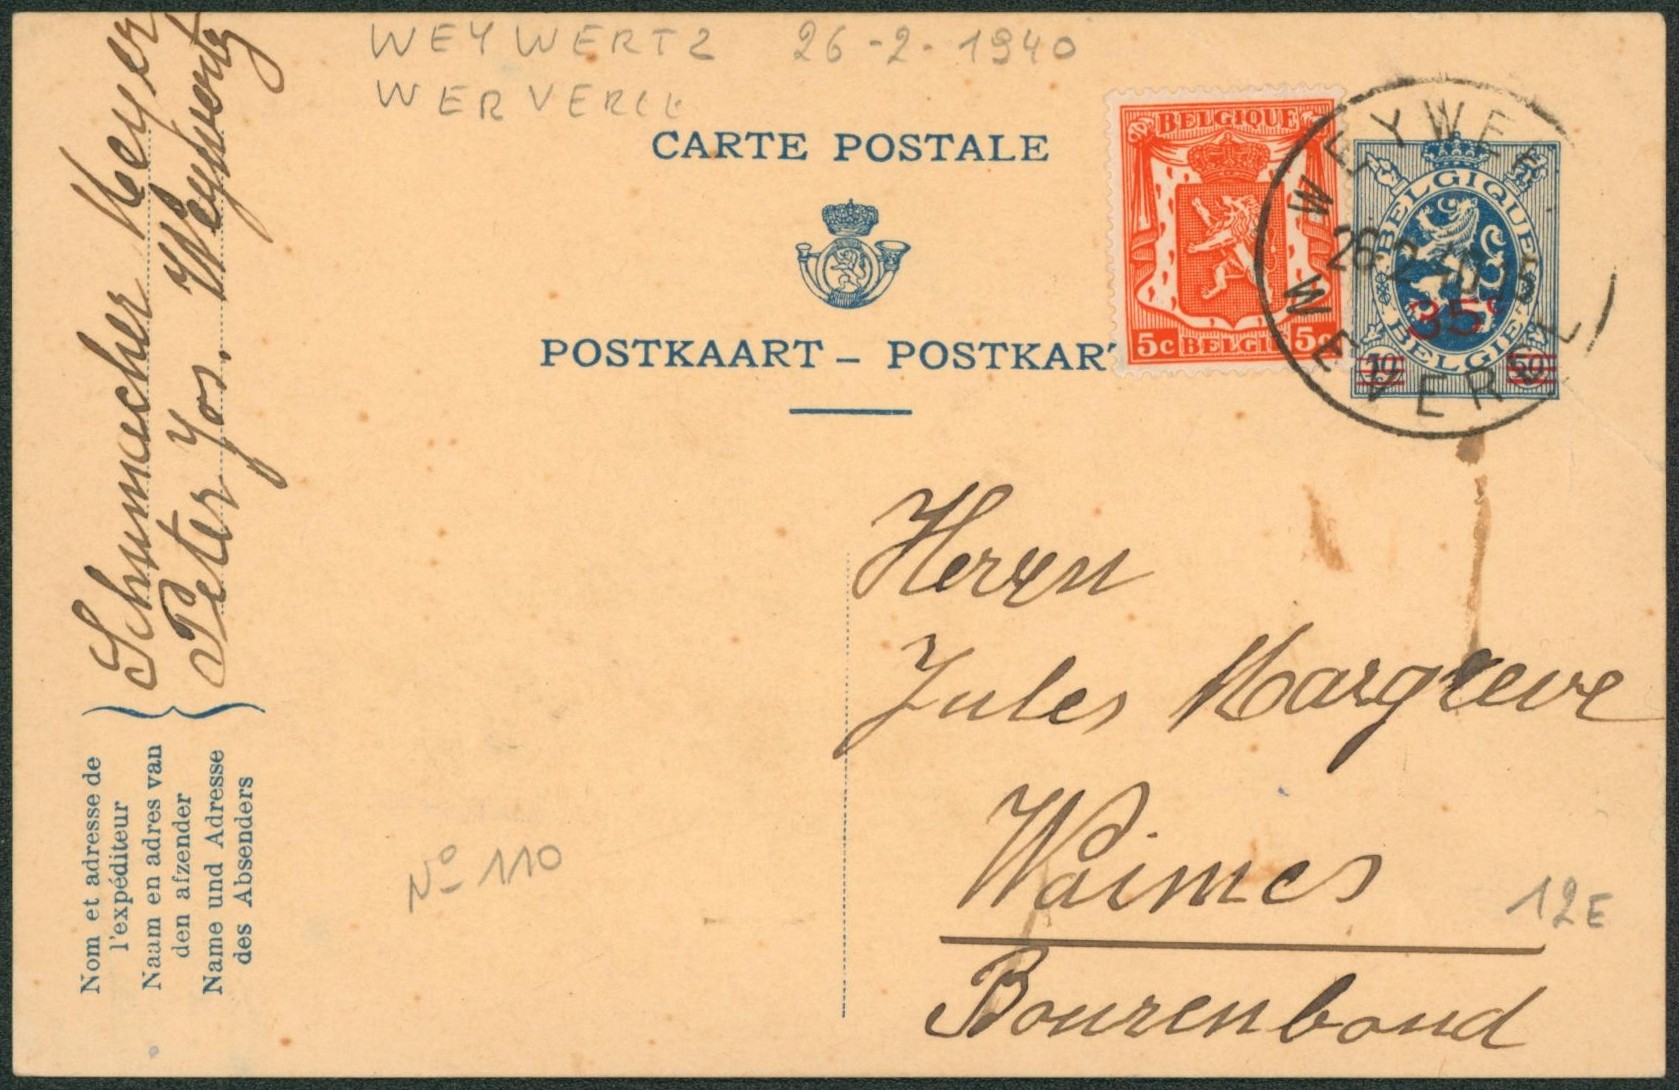 WEYWERTZ 26-2-1940
WERVERCK
CARTE POSTALE
POSTKAART – POSTKAR
BELGIQUE
5c BELGIE 5c
BELGIQUE
35c
BELGIE
10 50
WEYWE
26-2
WEVER
Schumacher Meyer
Peter Jos. Weywertz
Nom et adresse de
l'expéditeur
Naam en adres van
den afzender
Name und Adresse
des Absenders
Herrn
Jules Margreve
Waimes
Bourenbond
No 110
12E